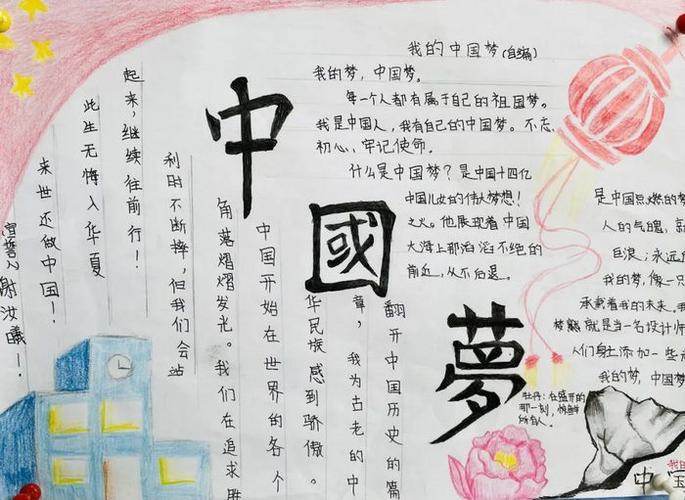 中國夢
我的中国梦(自编)
我的梦，中国梦。
每一个人都有属于自己的祖国梦。
我是中国人，我有自己的中国梦。不忘
初心、牢记使命。
什么是中国梦？是中国十四亿
中国儿女的伟大梦想！
之火。他展现着中国
大海上那滔滔不绝的
前近，从不后退。
是中国点燃的梦
人的气魄，就
巨浪；永远
我的梦，像一只
承载着我的未来。我
就是当一名设计师
人们身上添加一些
我的梦，中国梦
牡丹：在盛开的
那一刻，惊鲜
所有人。
中国
翻开中国历史的篇
章，我为古老的中
华民族感到骄傲。
中国开始在世界的各个
角落熠熠发光。我们在追求胜
利时不断摔，但我们会站
起来，继续往前行！
此生无悔入华夏
来世还做中国！
宣誓人谢汝曦！